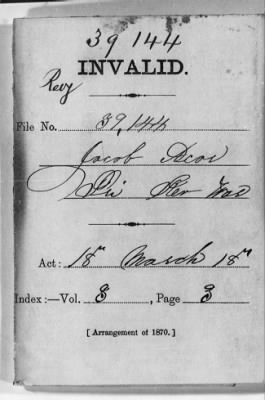 39 144
INVALID.
Rev
File No. 39,144
Jacob Acor
Pri Rev War
Act: 18th March 18
Index:—Vol. 8, Page 3
[ Arrangement of 1870. ]